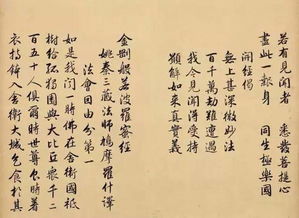 若有見聞者　悉發菩提心
盡此一報身　同生極樂國
開經偈
無上甚深微妙法
百千萬劫難遭遇
我今見聞得受持
願解如來真實義
金剛般若波羅蜜經
姚秦三藏法師鳩摩羅什譯
法會因由分第一
如是我聞一時佛在舍衛國祇
樹給孤獨園與大比丘眾千二
百五十人俱爾時世尊食時著
衣持鉢入舍衛大城乞食於其